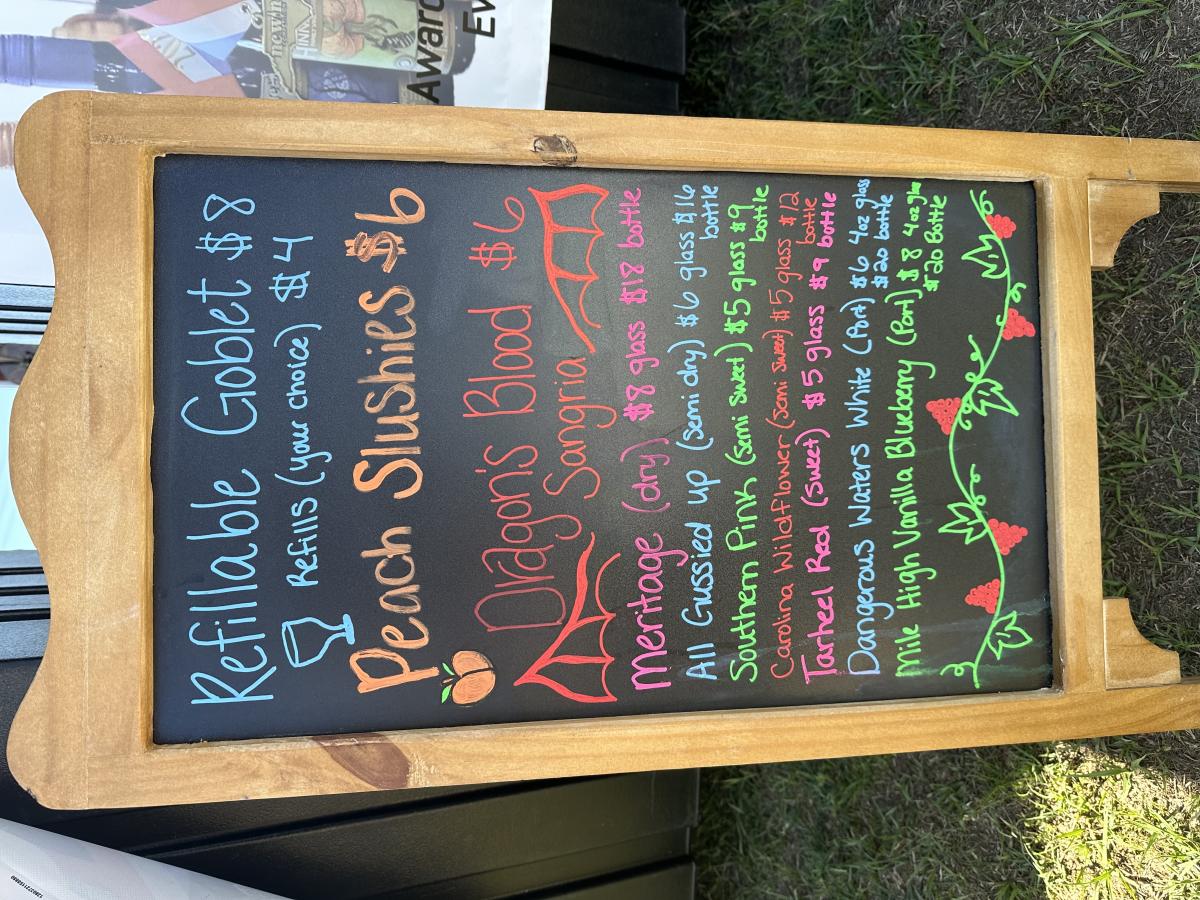 Refillable Goblet $8
Refills (your choice) $4
Peach Slushies $6
Dragon's Blood $6
Sangria
Meritage (dry) $8 glass $18 bottle
All Gussied up (semi dry) $6 glass $16
bottle
Southern Pink (Semi Sweet) $5 glass $9
bottle
Carolina Wildflower (Semi Sweet) $5 glass $12
bottle
Tarheel Red (Sweet) $5 glass $9 bottle
Dangerous Waters White (Port) $6 4oz glass
$20 bottle
Mile High Vanilla Blueberry (Port) $8 4oz glass
$20 Bottle
Award
Ev